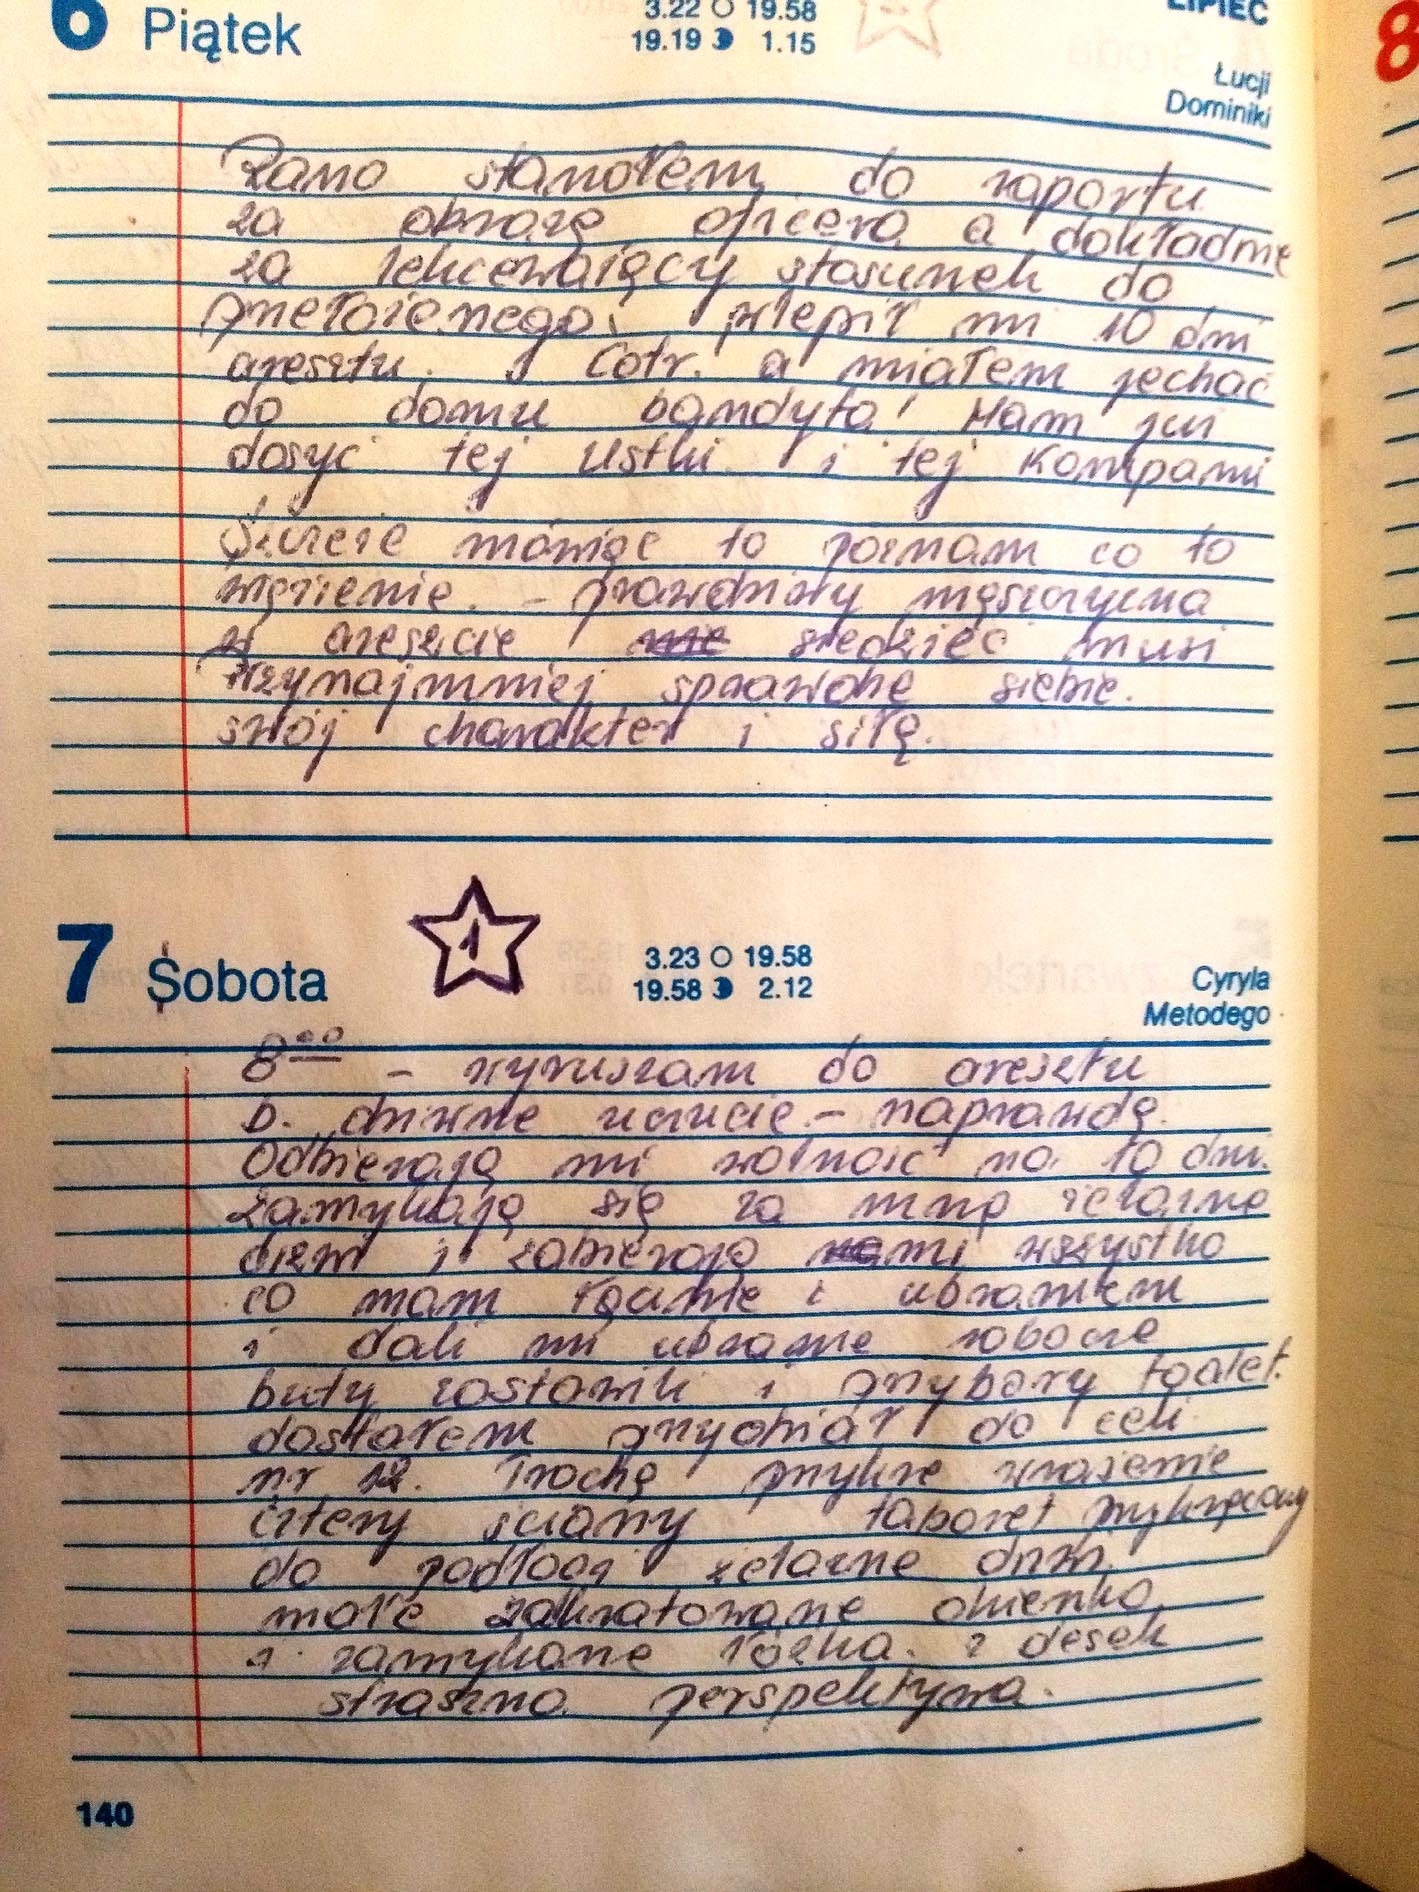 6 Piątek
3.22 19.58
19.19 1.15
LIPIEC
Łucji
Dominiki
8
Rano stanołem do raportu
za obrazę oficera a dokładnie
za lekceważący stosunek do
przełożonego. wlepił mi 10 dni
aresztu. Łotr. a miałem jechać
do domu bandyta! Mam już
dosyć tej Ustki i tej Kompani
Szczeże mówiąc to poznam co to
więzienie. - prawdziwy męszczyzna
w areszcie siedzieć musi
Przynajmniej sprawdzę siebie.
swój charakter i siłę.
7 Sobota
1
3.23 19.58
19.58 2.12
Cyryla
Metodego
8⁰⁰ - wyruszam do aresztu
b. dziwne uczucie - naprawdę.
Odbierają mi wolność na 10 dni.
Zamykają się za mną żelazne
dżwi i zabierają mi wszystko
co mam łącznie z ubraniem
i dali mi ubranie robocze
buty zostawili i przybory toalet.
dostałem przydział do celi
nr 12. Trochę przykre wrażenie
cztery ściany taboret przykręcony
do podłogi żelazne drzwi
małe zakratowane okienko
i zamykane łóżka z desek
straszna perspektywa.
140